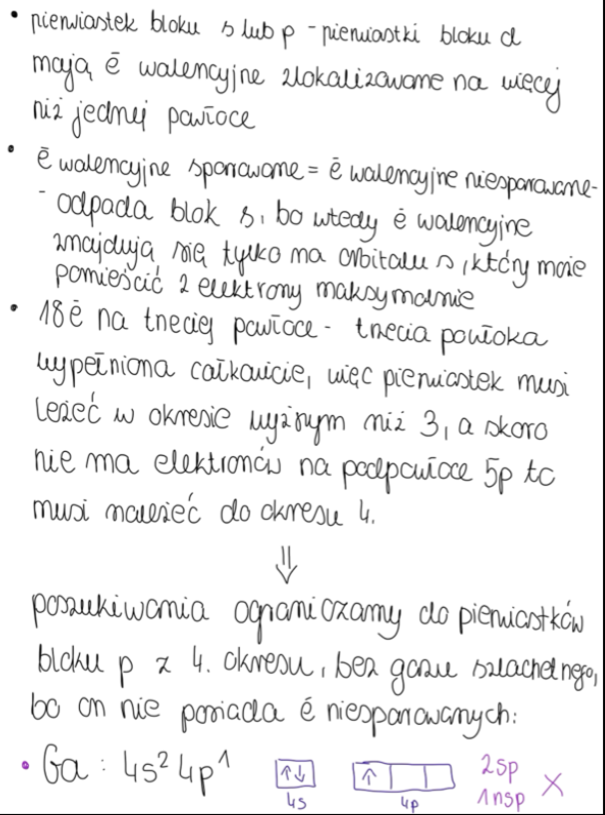 • pierwiastek bloku s lub p - pierwiastki bloku d
mają ē walencyjne zlokalizowane na więcej
niż jednej powłoce
• ē walencyjne sparowane = ē walencyjne niesparowane-
- odpada blok s, bo wtedy ē walencyjne
znajdują się tylko na orbitalu s, który może
pomieścić 2 elektrony maksymalnie
• 18ē na trzeciej powłoce - trzecia powłoka
wypełniona całkowicie, więc pierwiastek musi
leżeć w okresie wyższym niż 3, a skoro
nie ma elektronów na podpowłoce 5p to
musi należeć do okresu 4.
⇓
poszukiwania ograniczamy do pierwiastków
bloku p z 4. okresu, bez gazu szlachetnego,
bo on nie posiada ē niesparowanych:
• Ga : 4s² 4p¹ ↑↓ ↑ 2sp
4s 4p 1nsp X